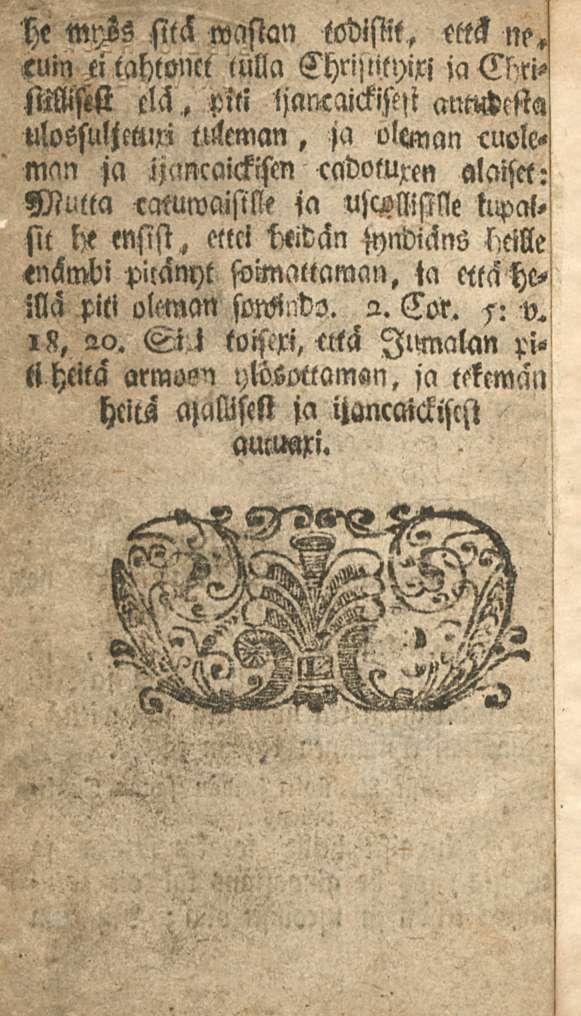 he myös sitä wastan todistit, että ne,
cuin ei tahtonet tulla Christityixi ja Chri-
stillisest elä, piti ijancaickisest autudesta
ulossuljetuxi tuleman, ja oleman cuole-
man ja ijancaickisen cadotuxen alaiset:
Mutta catuwaisille ja uscollisille lupai-
sit he ensist, ettei heidän syndiäns heille
enämbi pitänyt soimattaman, ja että he-
illä piti oleman sowindo. 2. Cor. 5: v.
18, 20. Sitt toisexi, että Jumalan pi-
ti heitä armoon ylösottaman, ja tekemän
heitä ajallisest ja ijancaickisest
autuaxi.